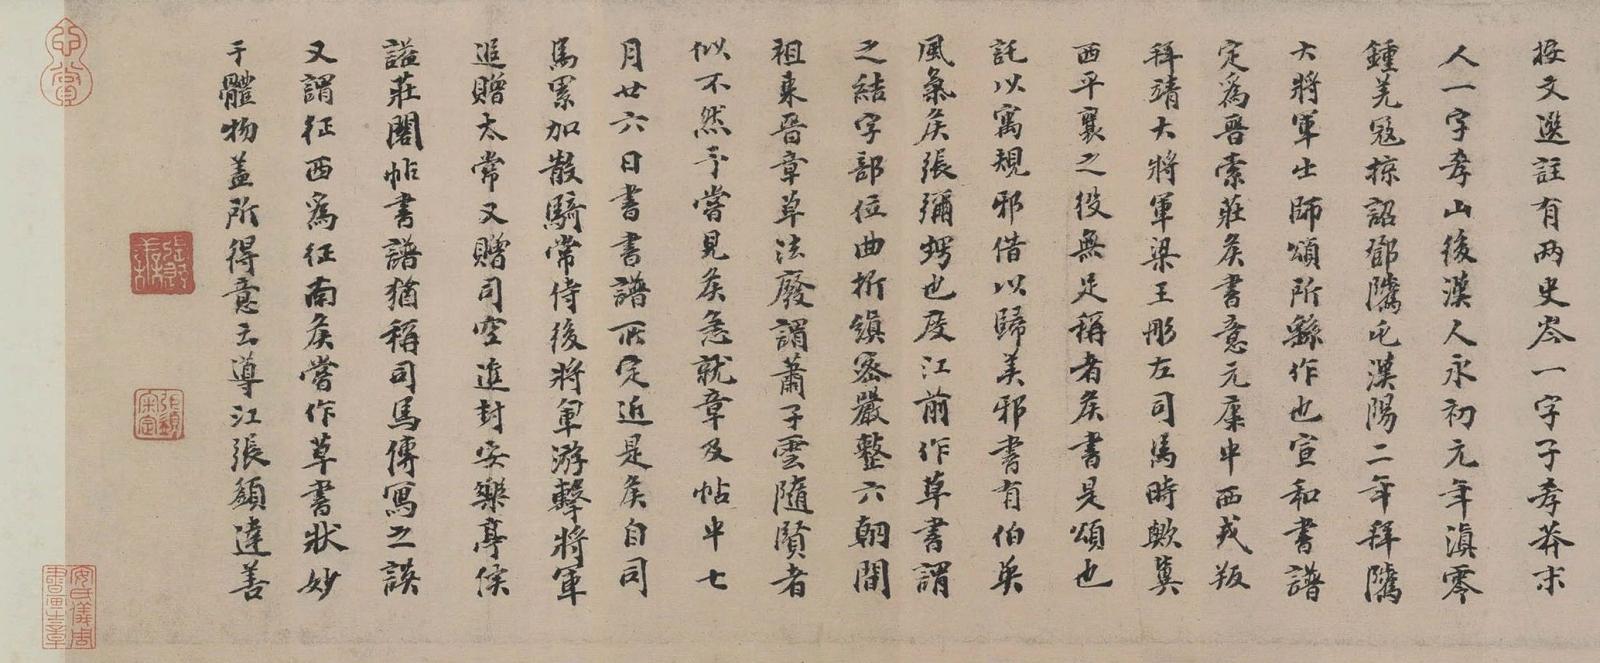 按文選註有两史岑一字子孝莽末
人一字孝山後漢人永初元年滇零
鍾羌冦掠詔鄧騭屯漢陽二年拜騭
大將軍出師頌所繇作也宣和書譜
定爲晉索莊矦書意元康中西戎叛
拜靖大將軍梁王肜左司馬時歟冀
西平襄之役無足稱者矦書是頌也
託以寓規邪借以歸美邪書有伯英
風氣矦張彌甥也度江前作草書謂
之結字部位曲折縝密嚴整六朝間
祖東晉章草法廢謂蕭子雲隨賢者
似不然予嘗見矦急就章及帖中七
月廿六日書書譜所定近是矦自司
馬累加散騎常侍後將軍游擊將軍
追贈太常又贈司空進封安樂亭侯
謚莊閣帖書譜猶稱司馬傳寫之誤
又謂征西爲征南矦嘗作草書狀妙
于體物蓋所得意云導江張䫜達善